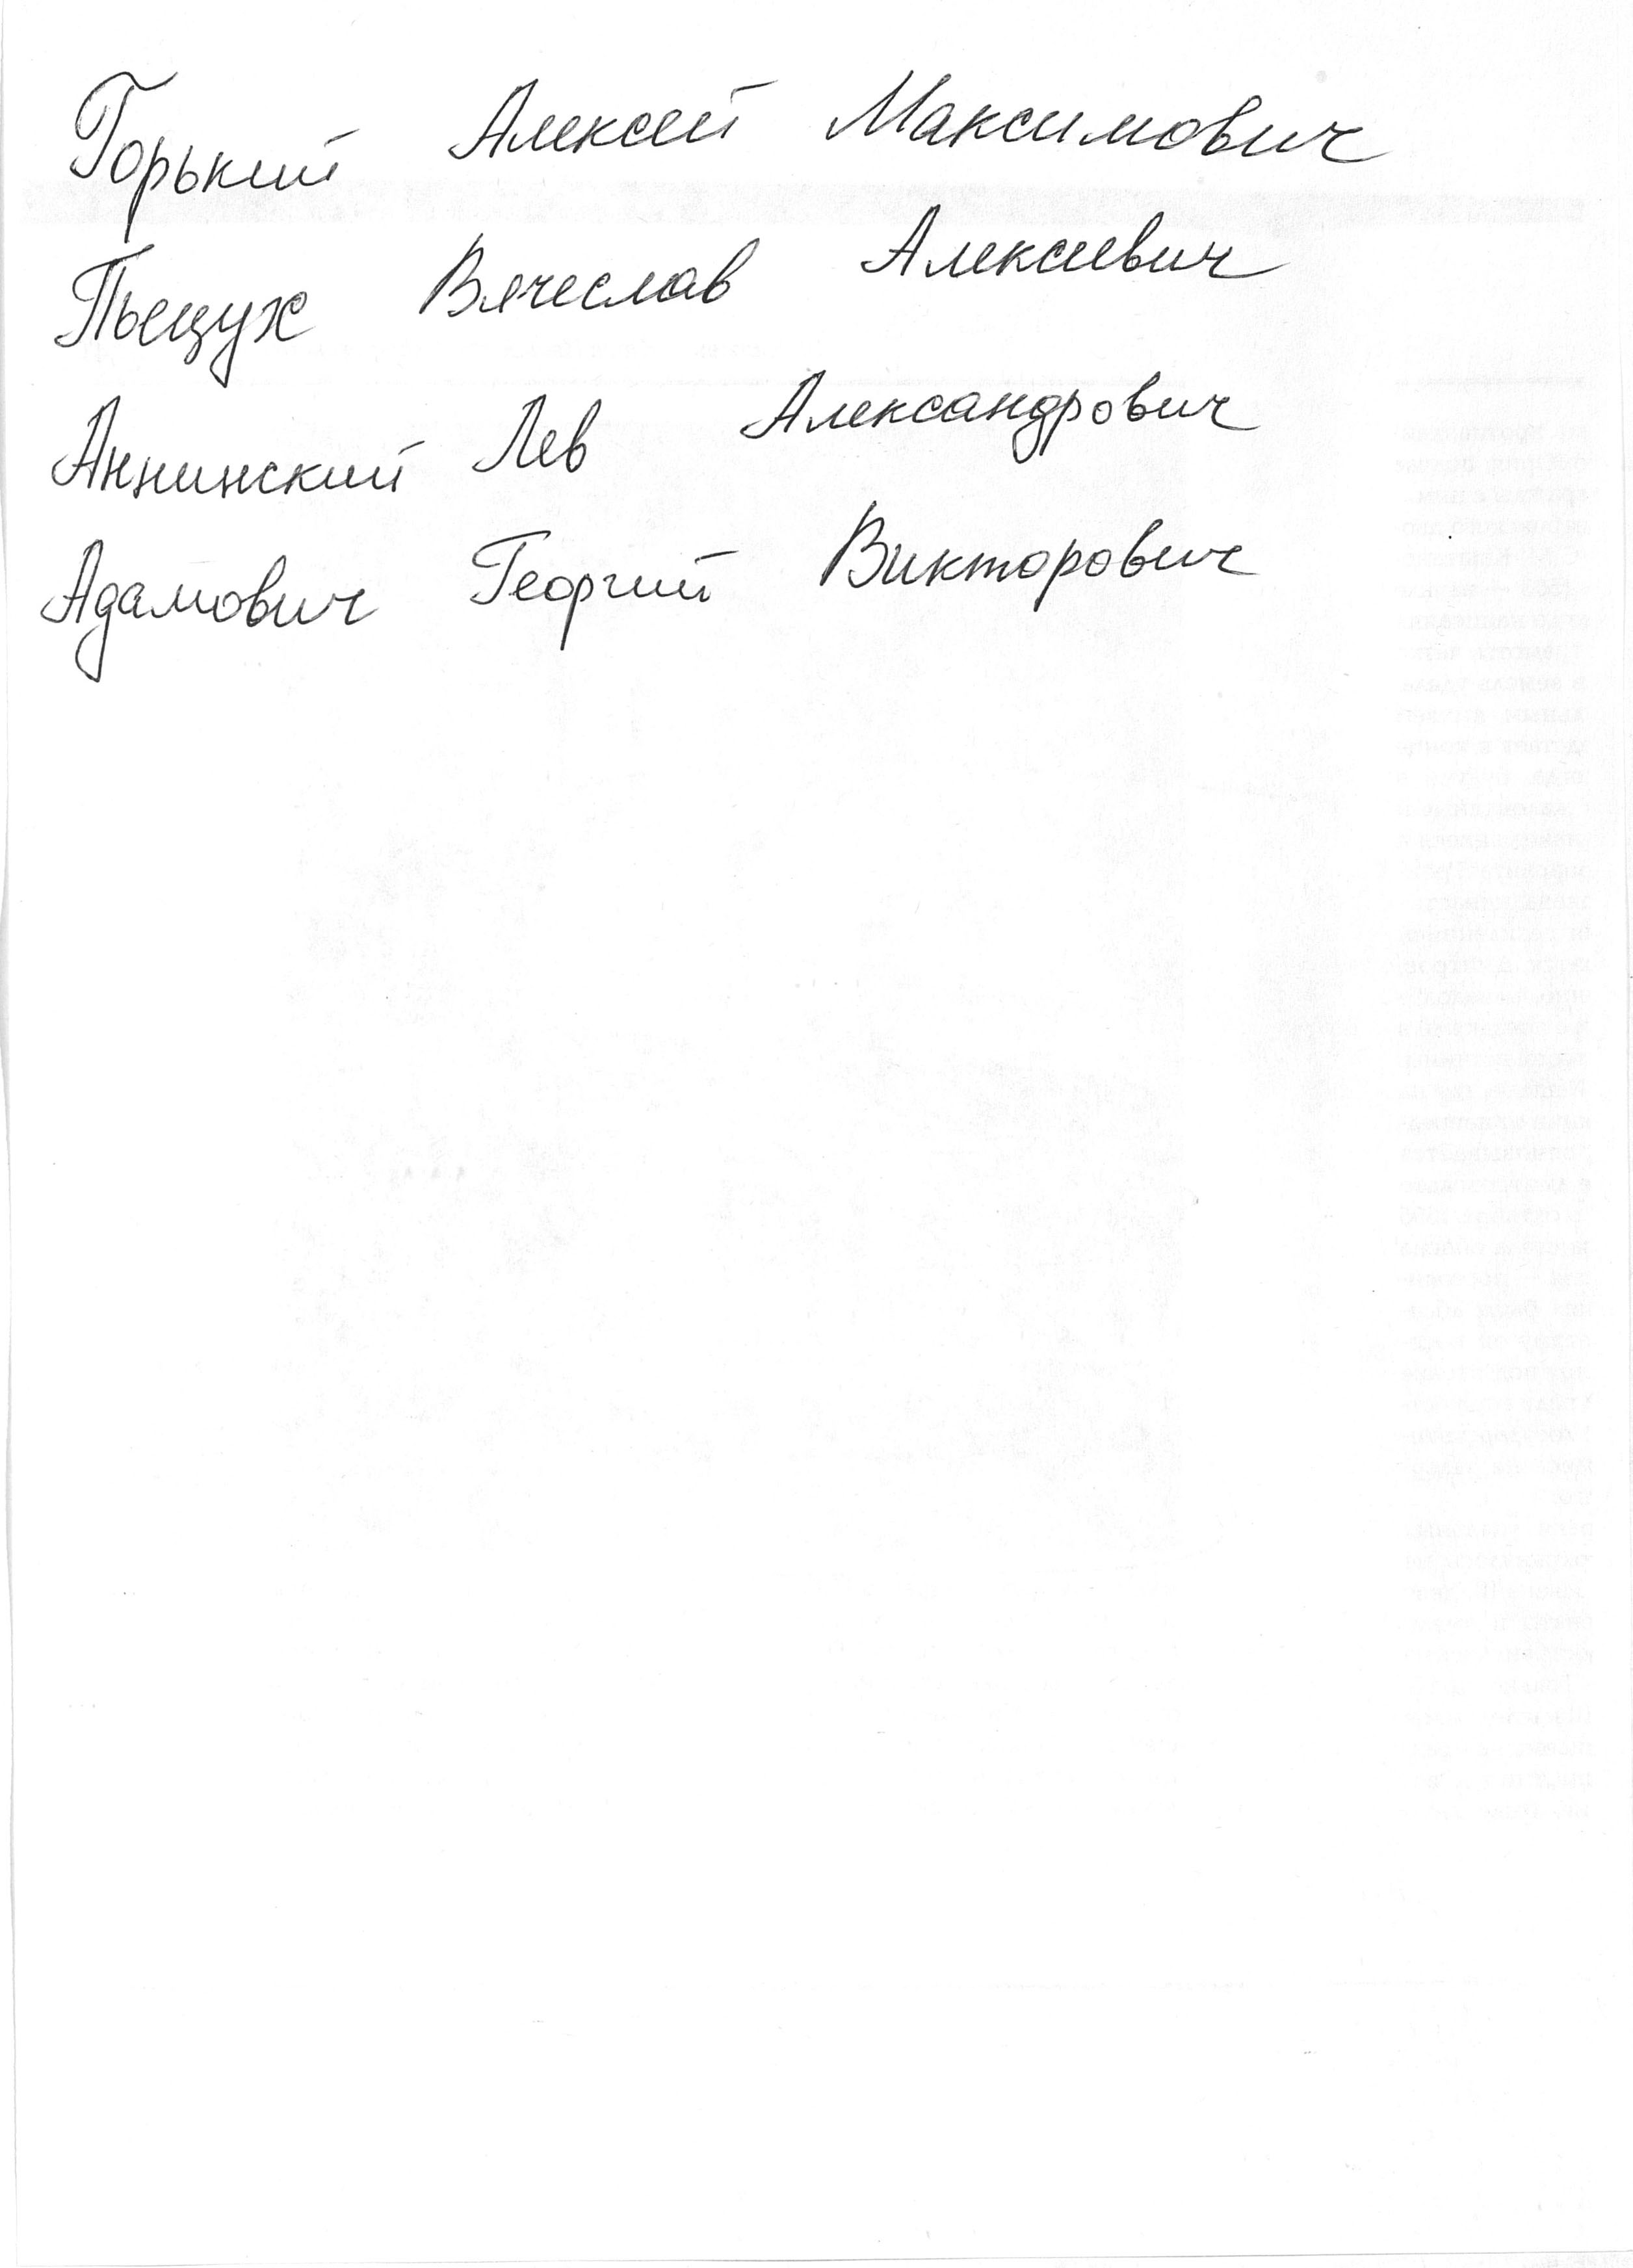 Горький Алексей Максимович
Пьецух Вячеслав Алексеевич
Аннинский Лев Александрович
Адамович Георгий Викторович